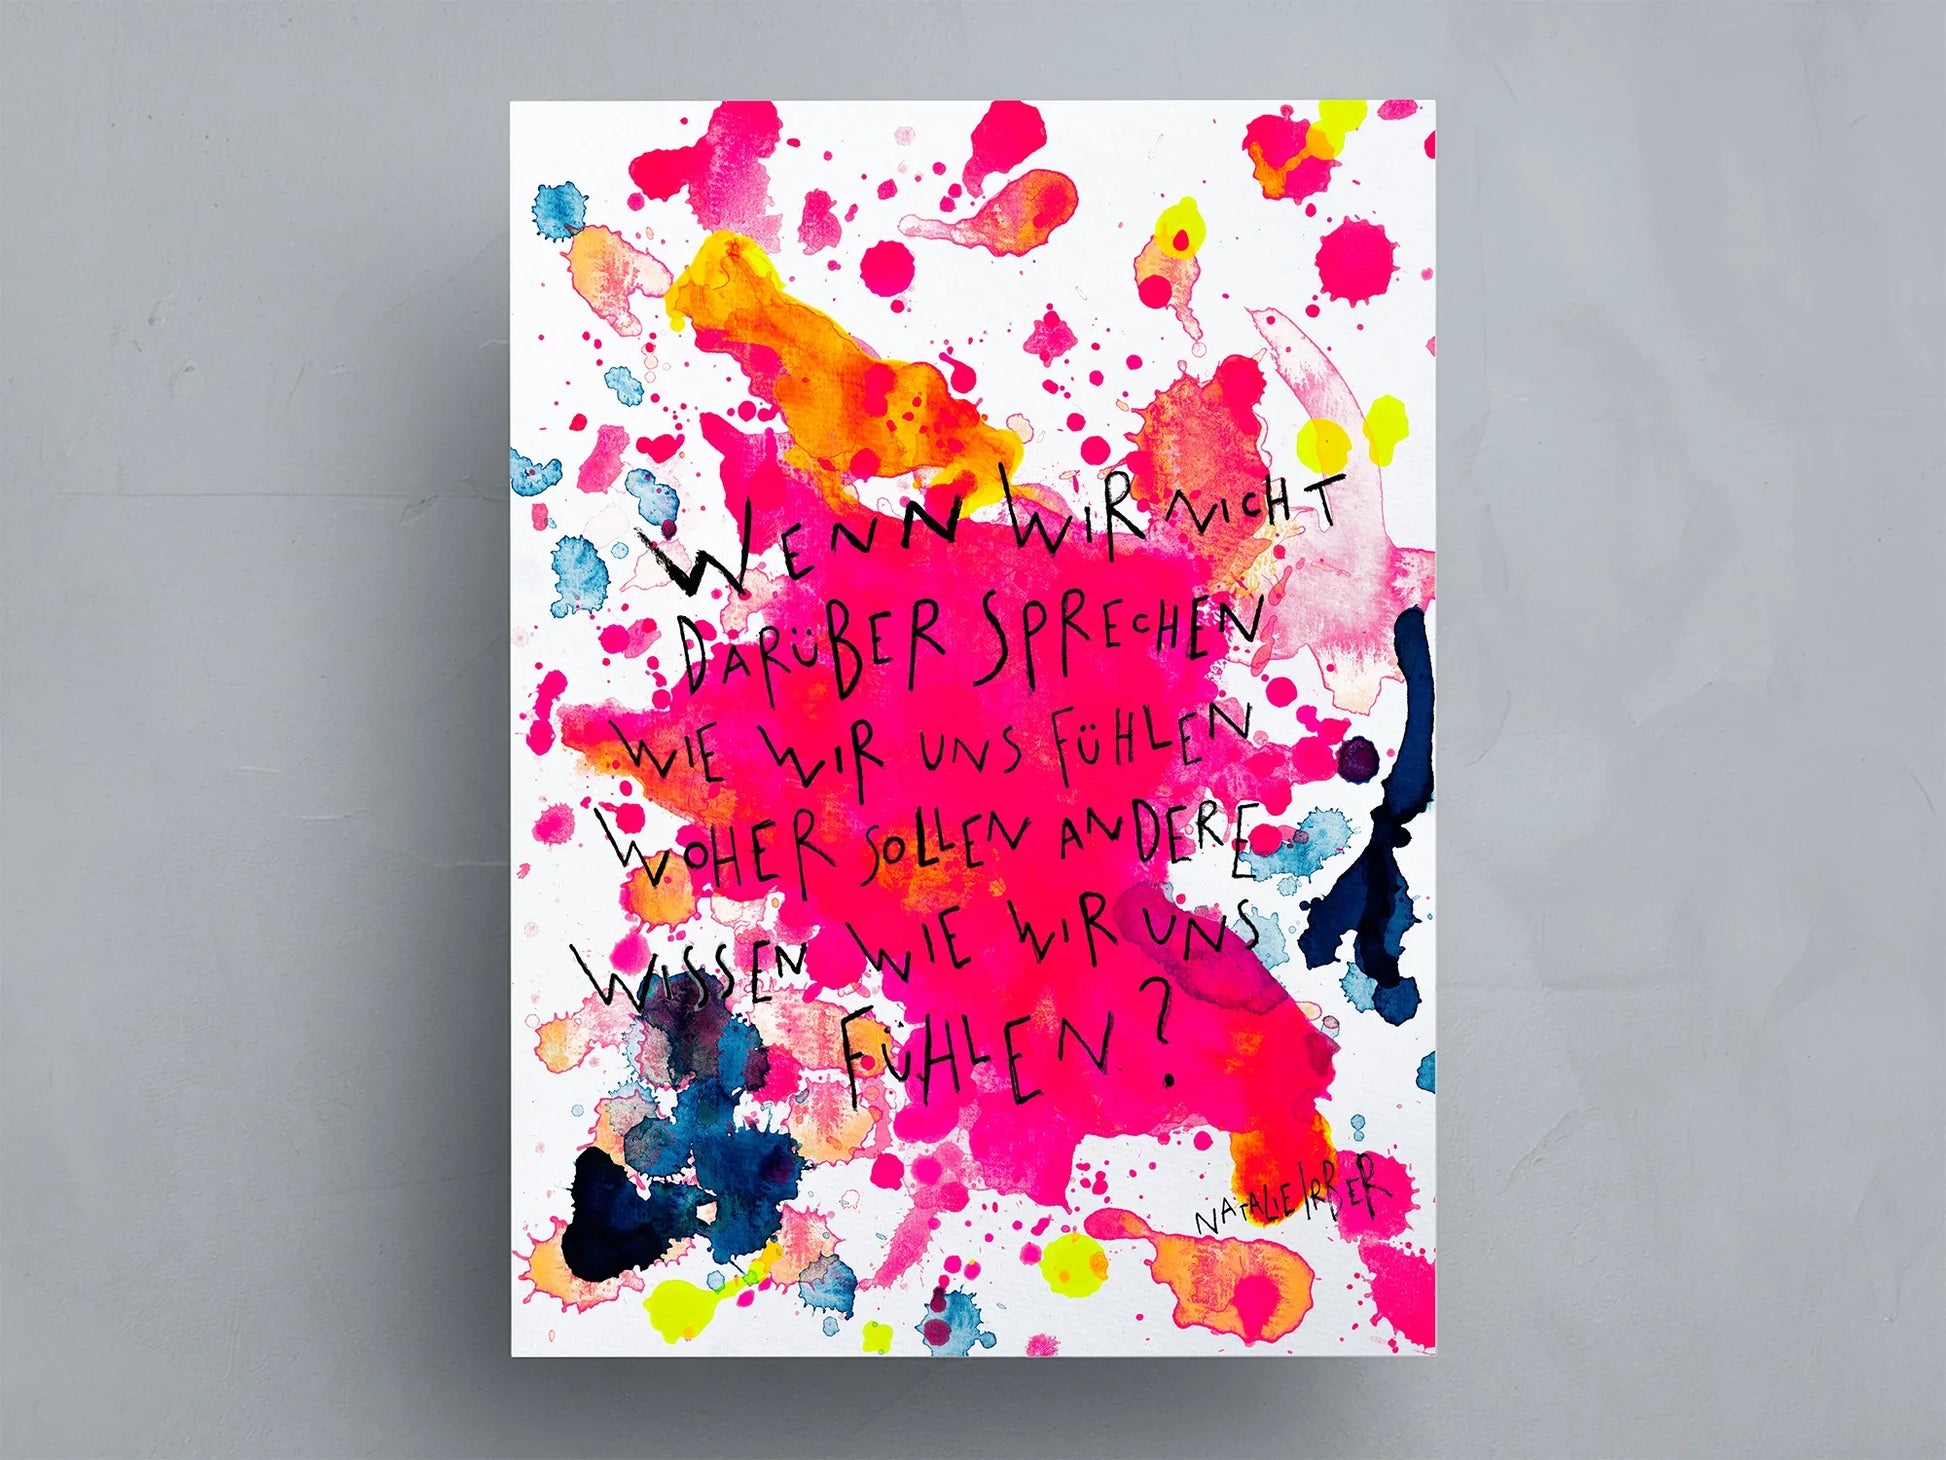 WENN WIR NICHT
DARÜBER SPRECHEN
WIE WIR UNS FÜHLEN
WOHER SOLLEN ANDERE
WISSEN WIE WIR UNS
FÜHLEN?
NATALIE IRBER